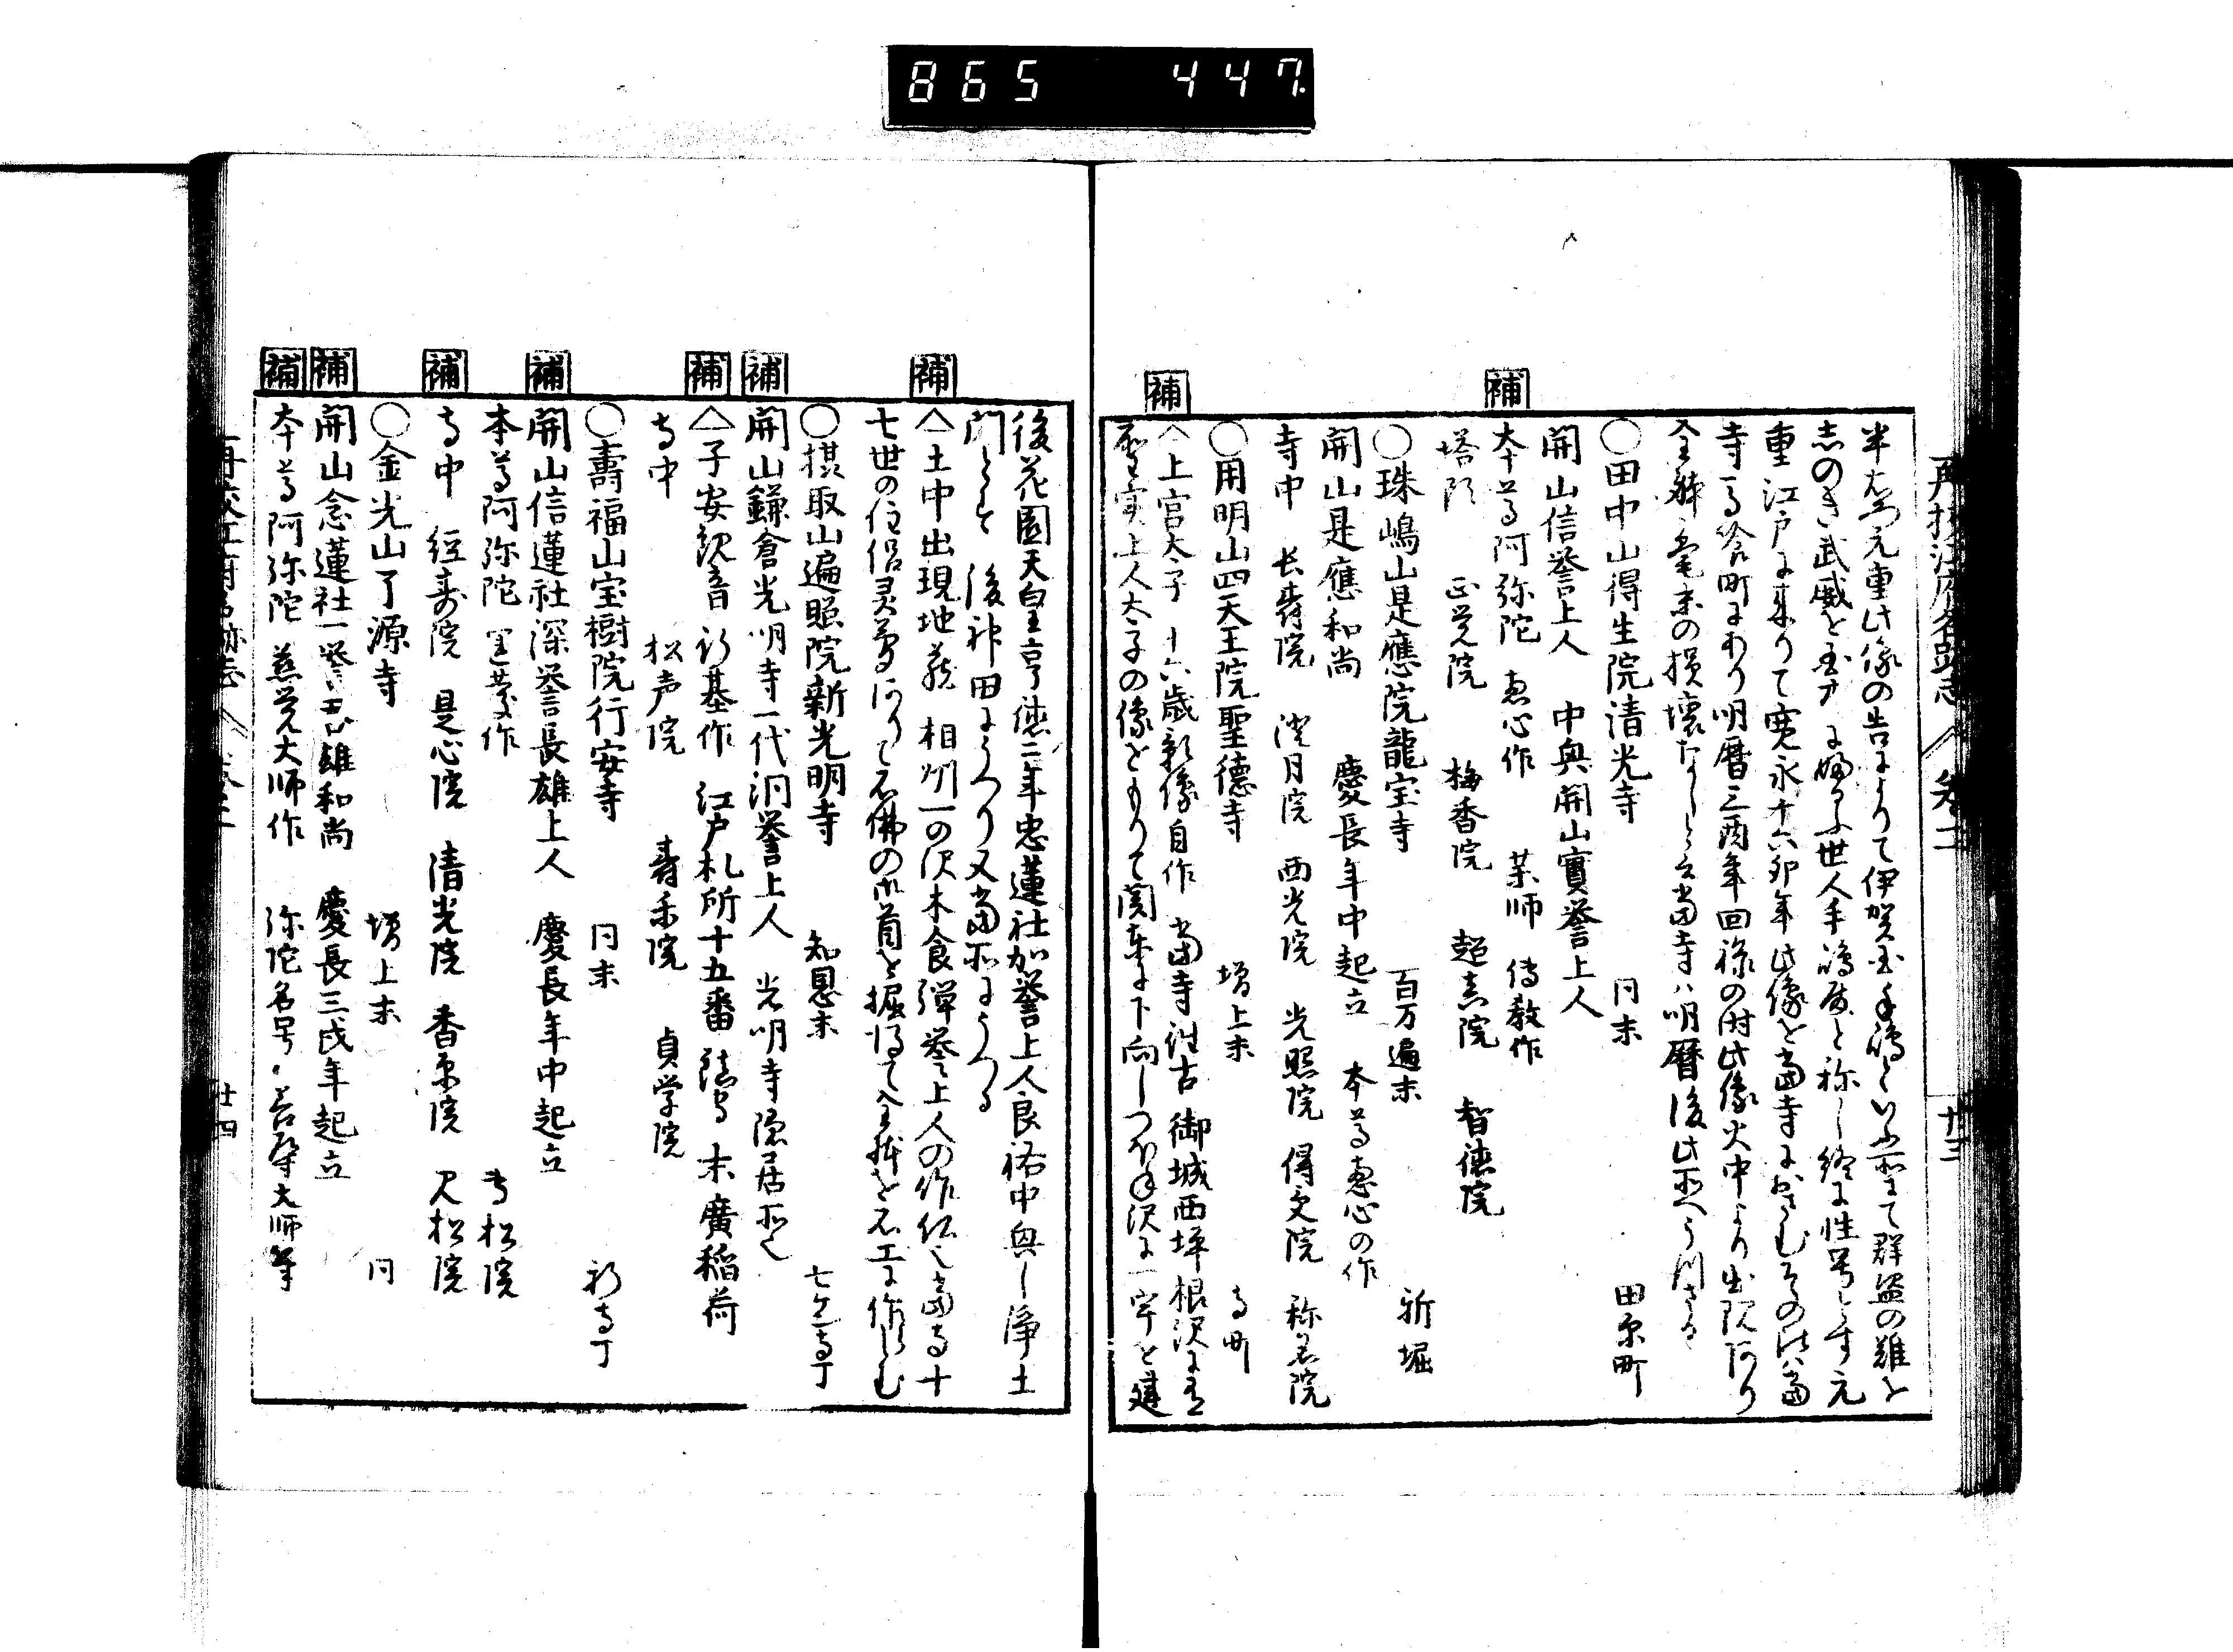 865 447
再校江府名跡志 巻二 廿三
半右衛門元重此像の告によりて伊賀国手嶋といふ所にて群盗の難を
志のき武威を
重江戸に来りて寛永十六卯年此像を当寺におさむその比ハ当
寺馬喰町にあり明暦三酉年回禄の時此像火中より出現ありて
全躰毫末の損壊なしと云当寺ハ明暦後此所へうつさる
○田中山得生院清光寺 同末 田原町
開山信誉上人 中興開山實誉上人
補
本尊阿弥陀 恵心作 薬師 傳教作
塔頭 正覚院 梅香院 超真院 智徳院
○珠嶋山是應院龍宝寺 百万遍末 新堀
開山是應和尚 慶長年中起立 本尊恵心の作
寺中 長壽院 澄月院 西光院 光照院 得交院 称名院
○用明山四天王院聖徳寺 増上末 寺町
補
△上宮太子 十六歳影像自作 当寺往古御城西坪根沢に有
聖実上人太子の像をもりて関東に下向しつぼね沢に一宇を建
後花園天皇享徳二年忠蓮社加誉上人良祐中興し浄土
門とす 後神田にうつり又当所にうつる
補
△土中出現地蔵 相州一の沢木食弾誓上人の作仏也当寺十
七世の住侶灵夢ありて石佛の御首を掘得て全躰を石工に作らしむ
○摂取山遍照院新光明寺 知恩末 七ケ寺丁
補
開山鎌倉光明寺一代洞誉上人 光明寺隠居所也
補
△子安観音 行基作 江戸札所十五番 鎮守 末廣稲荷
寺中 松声院 壽禾院 貞学院
○壽福山宝樹院行安寺 同末 新寺丁
補
開山信蓮社深誉長雄上人 慶長年中起立
本尊阿弥陀 運慶作 专松院
補
寺中 経寿院 是心院 清光院 香原院 久松院
○金光山了源寺 増上末 同
補
開山念蓮社一誉 雄和尚 慶長三戌年起立
補
本尊阿弥陀 慈覚大師作 弥陀名号ハ 善導大師筆
再校江府名跡志 巻二 廿四